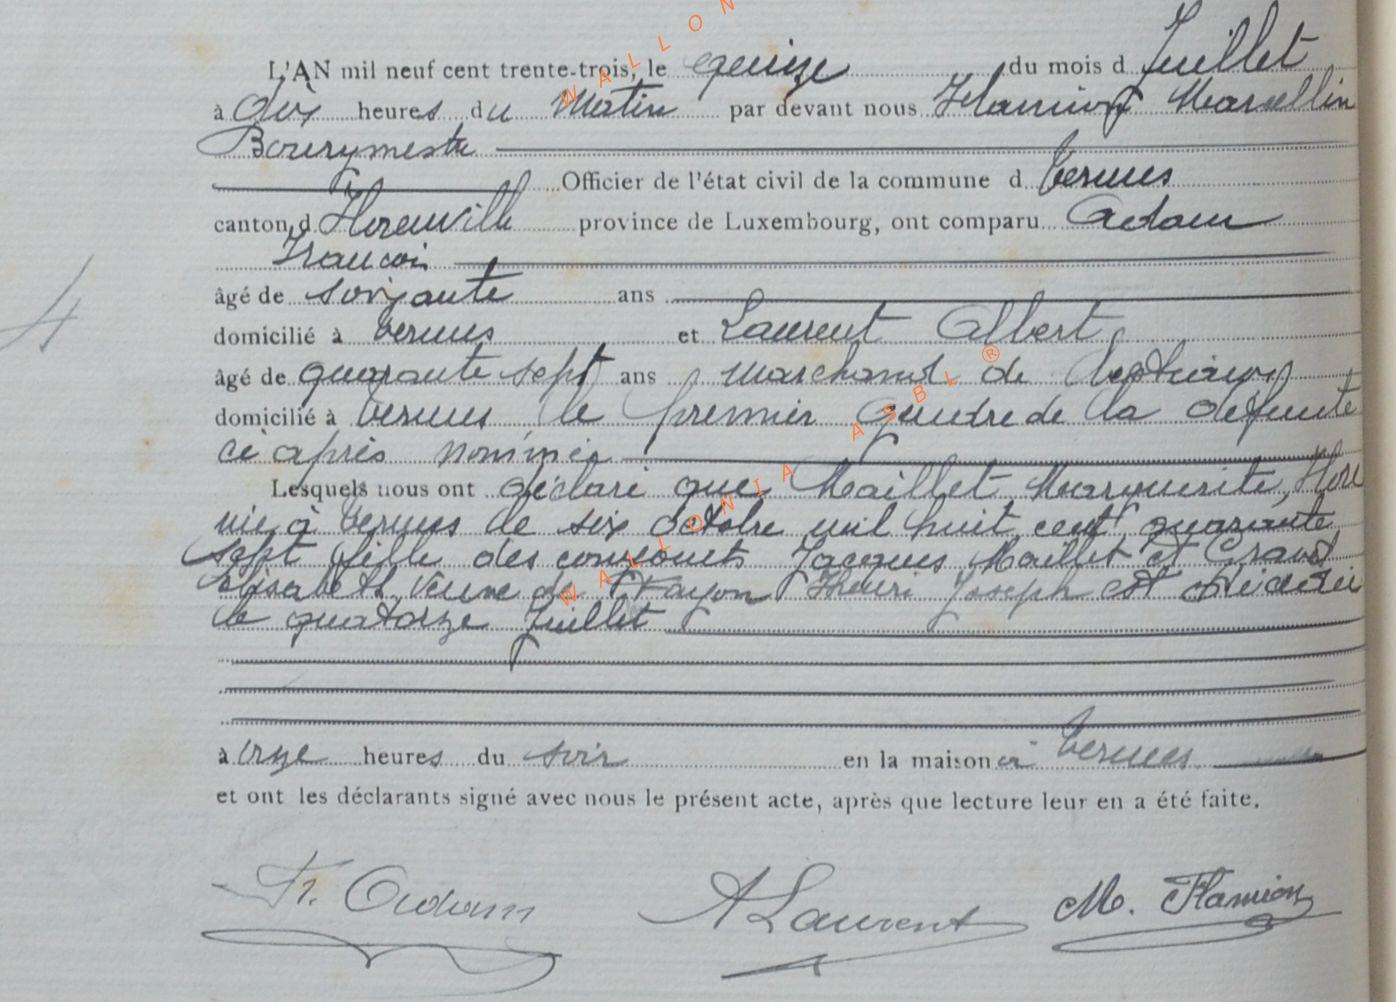 L'AN mil neuf cent trente-trois, le quinze du mois d Juillet
à dix heures du Matin par devant nous Flamion Marcellin
Bourgmestre
Officier de l'état civil de la commune d Termes
canton d Florenville province de Luxembourg, ont comparu Adam
Francois
âgé de soixante ans
domicilié à Termes et Laurent Albert
âgé de quarante sept ans marchand de
domicilié à Termes le premier gendre de la défunte
ci après nommée
Lesquels nous ont déclaré que Maillet Marguerite,
née à Termes le six octobre mil huit cent quarante
sept fille des conjoints Jacques Maillet et
Elisabeth, veuve de Henri Joseph est décédée
le quatorze Juillet
à onze heures du soir en la maison à Termes
et ont les déclarants signé avec nous le présent acte, après que lecture leur en a été faite.
4
Fr. Adam A Laurent M. Flamion
WALLONIA ASBL ®
WALLON